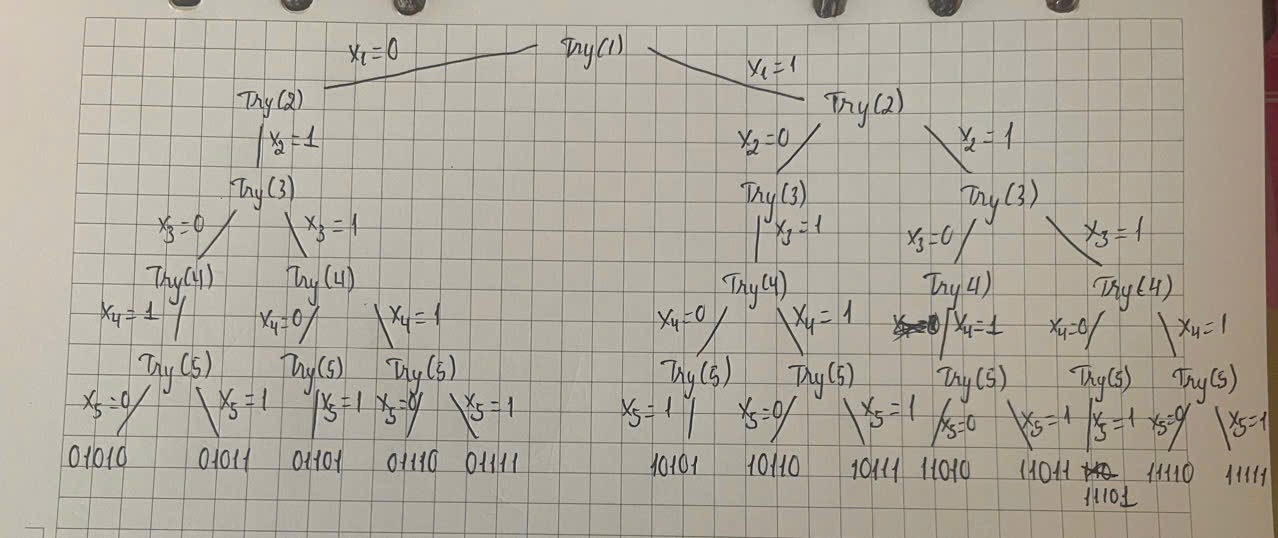 x₁=0 Try(1) x₁=1
Try(2) Try(2)
x₂=1 x₂=0 x₂=1
Try(3) Try(3) Try(3)
x₃=0 x₃=1 x₃=1 x₃=0 x₃=1
Try(4) Try(4) Try(4) Try4) Try(4)
x₄=1 x₄=0 x₄=1 x₄=0 x₄=1 x₄=1 x₄=0 x₄=1
Try(5) Try(5) Try(5) Try(5) Try(5) Try(5) Try(5) Try(5)
x₅=0 x₅=1 x₅=1 x₅=0 x₅=1 x₅=1 x₅=0 x₅=1 x₅=0 x₅=1 x₅=1 x₅=0 x₅=1
01010 01011 01101 01110 01111 10101 10110 10111 11010 11011 11110 11111
11101